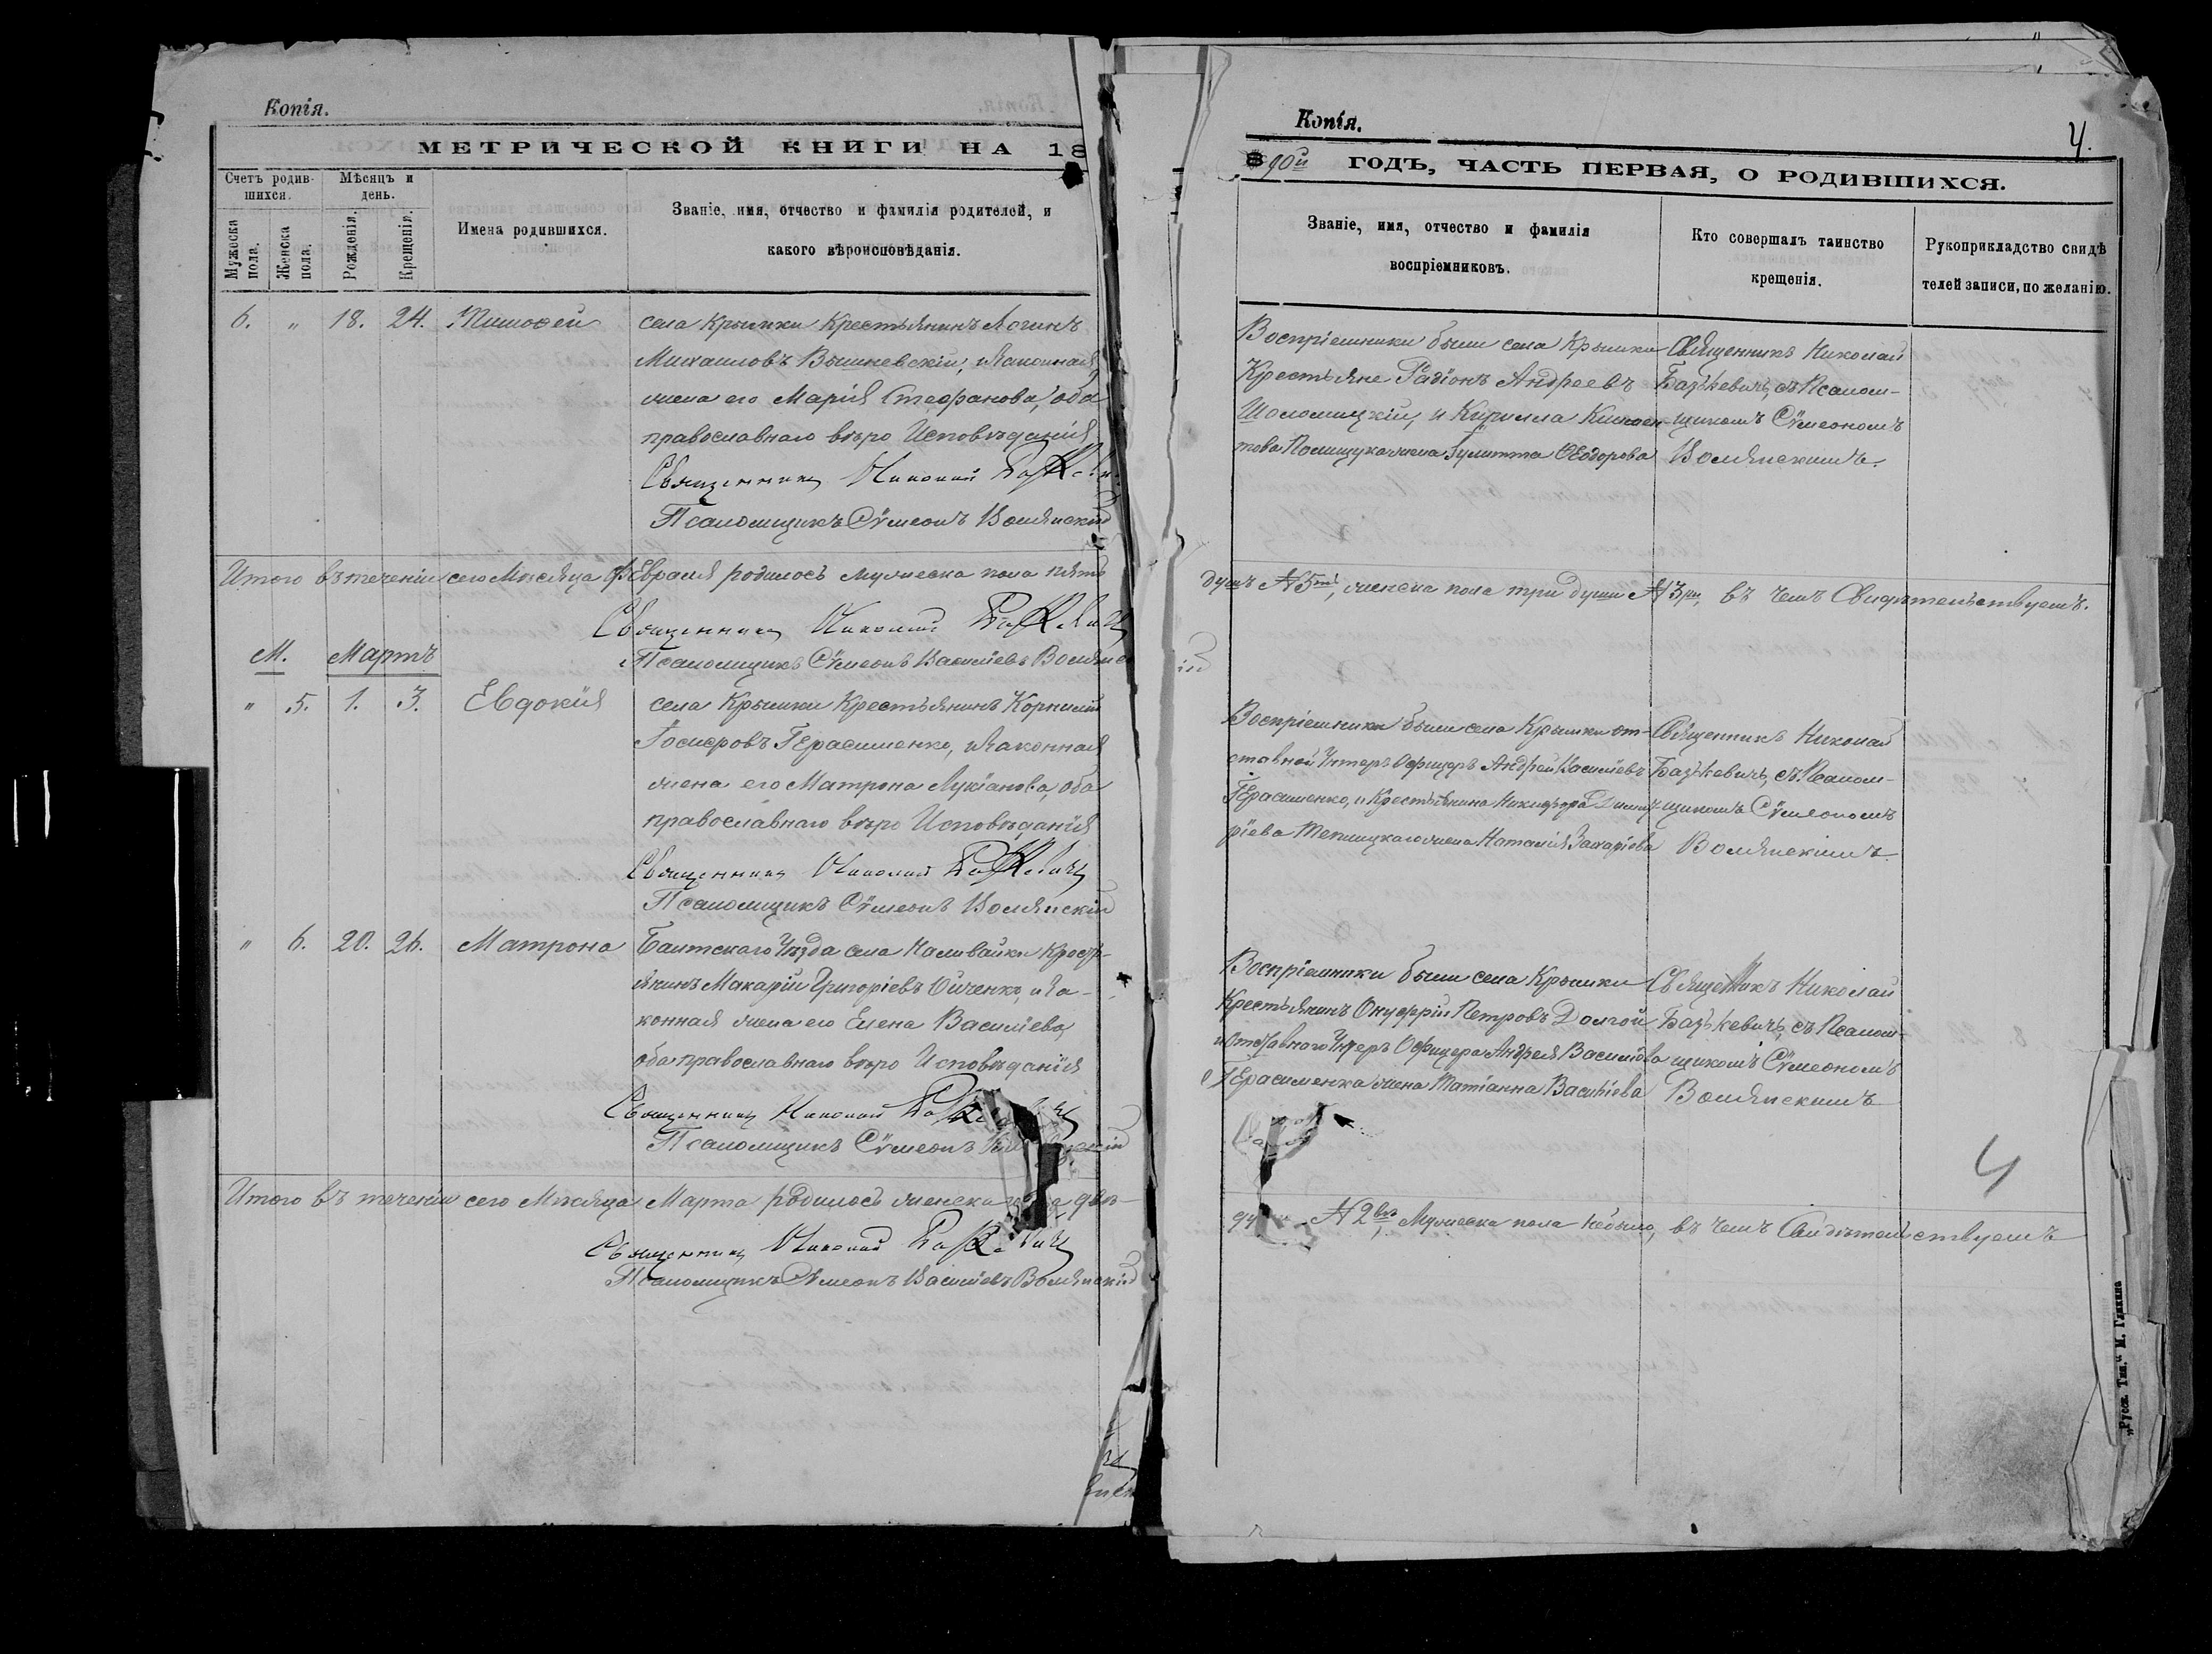 Копія.
МЕТРИЧЕСКОЙ КНИГИ НА 18
Счетъ родив-
шихся.
Мѣсяцъ и
день.
Мужеска
пола.
Женска
пола.
Рожденія.
Крещенія.
Имена родившихся.
Званіе, имя, отчество и фамилія родителей, и
какого вѣроисповѣданія.
6. " 18. 24. Тимофей
села Крымки Крестьянинъ Логинъ
Михаиловъ Вышневскій, и законная
жена его Марія Стефанова, оба
православнаго вѣро Исповѣданія
Священникъ Николай
Псаломщикъ Сѵмеонъ Волянскій
Итого въ теченіи сего Мѣсяца Февраля родилось мужеска пола пять
Священникъ Николай
М. Мартъ
Псаломщикъ Сѵмеонъ Василіевъ Волянс
" 5. 1. 3. Евдокія
села Крымки Крестьянинъ Корнилій
Герасименко, и законная
жена его Матрона Лукіанова, оба
православнаго вѣро Исповѣданія
Священникъ Николай
Псаломщикъ Сѵмеонъ Волянскій
" 6. 20. 26. Матрона
Балтскаго Уѣзда села Наливайки Кресть-
янинъ Макарій Григоріевъ Ойченко, и за-
конная жена его Елена Василіева,
оба православнаго вѣро Исповѣданія
Священникъ Николай
Псаломщикъ Сѵмеонъ
Итого въ теченіи сего Мѣсяца Марта родилось женска двѣ
Священникъ Николай
Псаломщикъ Сѵмеонъ Василіевъ Волянскій
Копія.
4.
90й ГОДЪ, ЧАСТЬ ПЕРВАЯ, О РОДИВШИХСЯ.
Званіе, имя, отчество и фамилія
воспріемниковъ.
Кто совершалъ таинство
крещенія.
Рукоприкладство свидѣ
телей записи, по желанію.
Воспріемники были села Крымки
Крестьяне Радіонъ Андреевъ
Шоломицкій, и Кирилла Климен-
това Полищука жена Іулитта Ѳеодорова
Священникъ Николай
Базькевичъ, съ Псалом-
щикомъ Сѵмеономъ
Волянскимъ.
душъ №5ть, женска пола три души №3ри, въ чемъ Свидѣтельствуемъ.
ій
Воспріемники были села Крымки от-
ставной Унтеръ Офицеръ Андрей Василіевъ
Герасименко, и Крестьянина Никифора Димит-
ріева жена Наталія Захаріева
Священникъ Николай
Базькевичъ, съ Псалом-
щикомъ Сѵмеономъ
Волянскимъ
Воспріемники были села Крымки
Крестьянинъ Онуфрій Петровъ Долгой
и Отставнаго Унтеръ Офицера Андрея Василіева
Герасименка жена Татіанна Василіева
Священникъ Николай
Базькевичъ, съ Псалом-
щикомъ Сѵмеономъ
Волянскимъ
4
№2вѣ, Мужеска пола небыло, въ чемъ Свидѣтельствуемъ
„Русск. Тип." М. Галкина